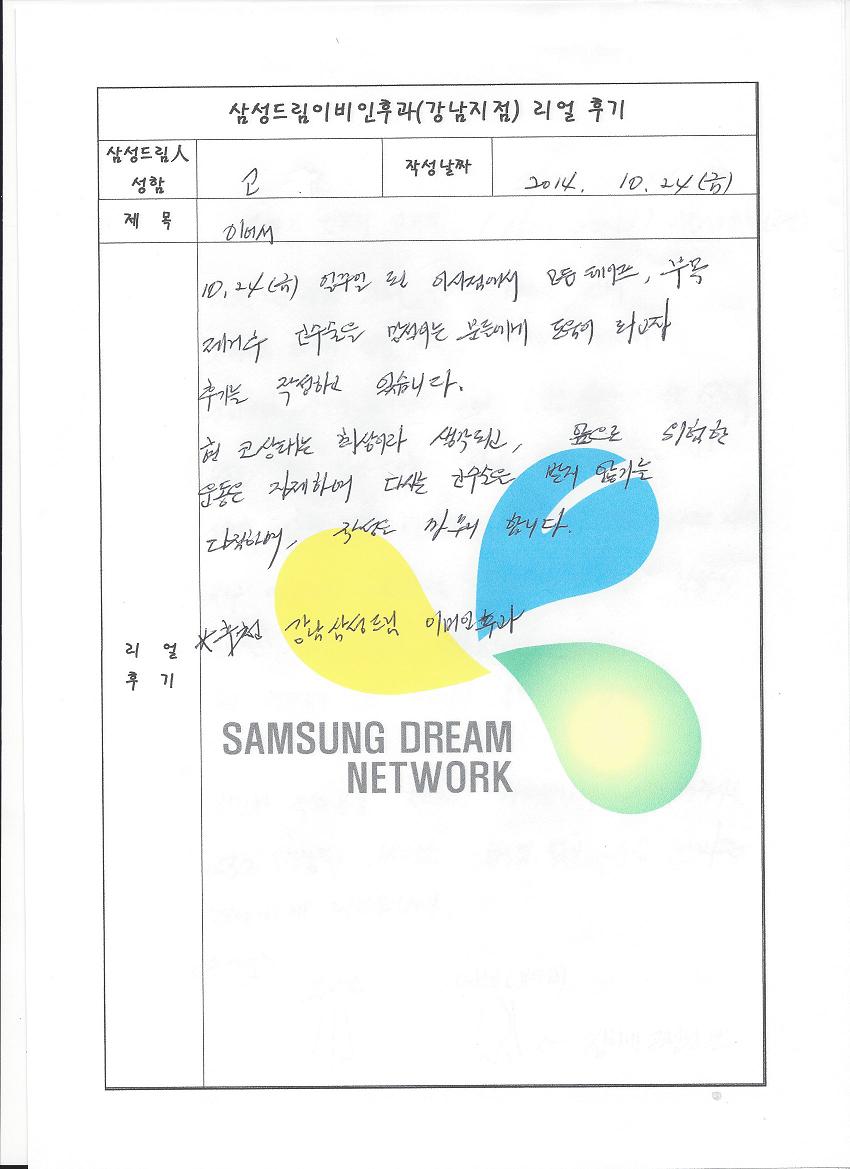 삼성드림이비인후과(강남지점) 리얼 후기
삼성드림人 성함
고
작성날짜
2014. 10. 24 (금)
제 목
이어서
10. 24 (금) 일주일 된 이시점에서 모등 테이프, 부목
제거후 코수술을 망설이는 분들에게 도움이 되고자
후기를 작성하고 있습니다.
현 코상태는 최상이라 생각되고, 앞으로 위험한
운동은 자제하며 다시는 코수술은 받지 않기를
다짐하며, 작성은 마무리 합니다.
*추천 강남삼성드림 이비인후과
리 얼
후 기
SAMSUNG DREAM
NETWORK